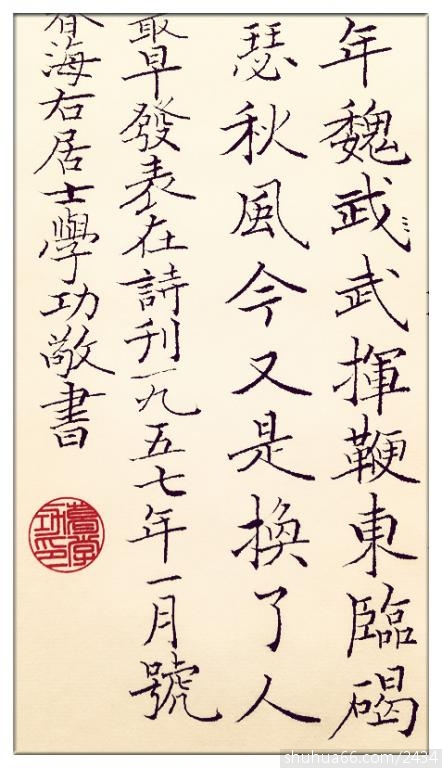 年魏武武揮鞭東臨碣
瑟秋風今又是換了人
最早發表在詩刊一九五七年一月號
海右居士學功敬書
shuhua66.com/2434